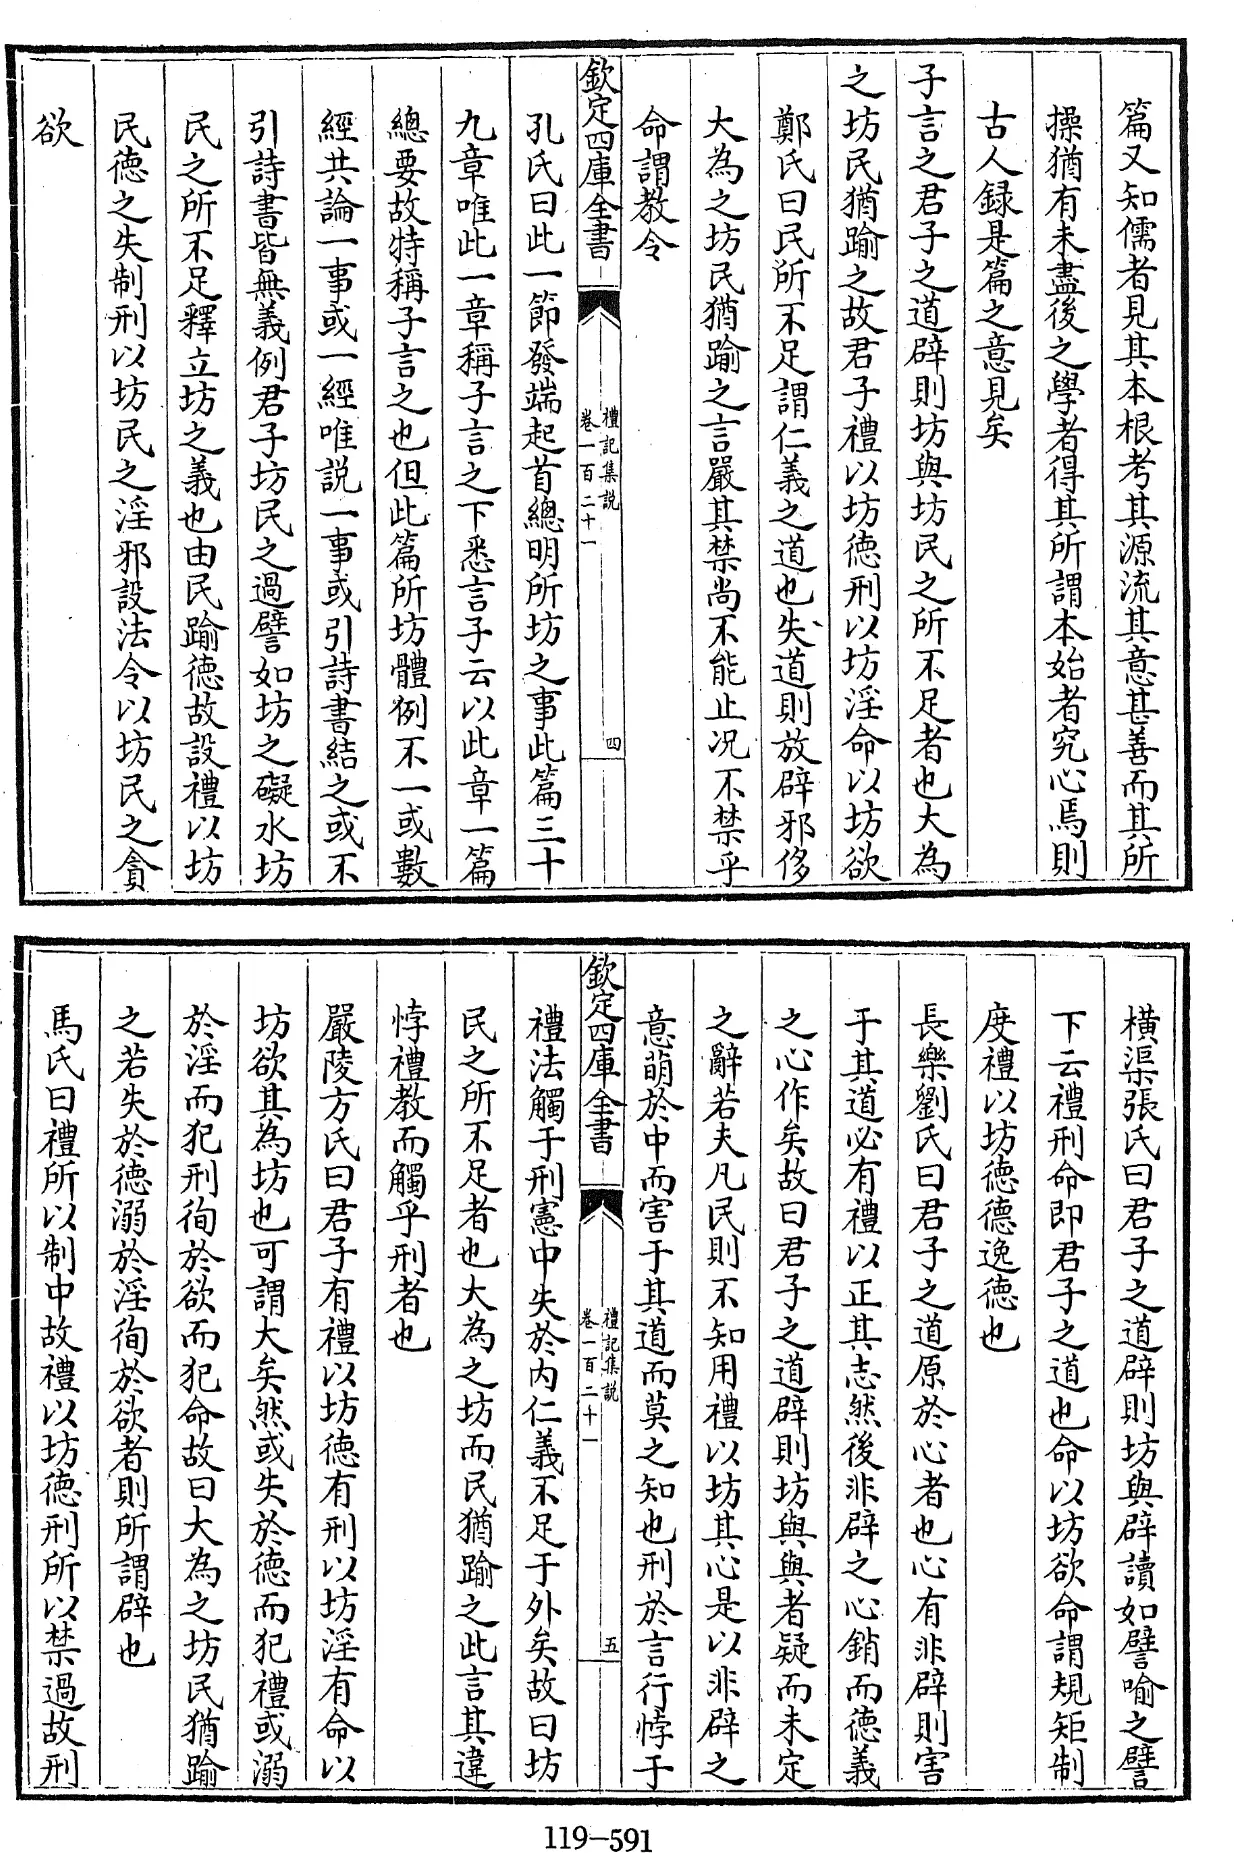 篇又知儒者見其本根考其源流其意甚善而其所
操猶有未盡後之學者得其所謂本始者究心焉則
古人録是篇之意見矣
子言之君子之道辟則坊與坊民之所不足者也大為
之坊民猶踰之故君子禮以坊德刑以坊淫命以坊欲
鄭氏曰民所不足謂仁義之道也失道則放辟邪侈
大為之坊民猶踰之言嚴其禁尚不能止况不禁乎
命謂教令
欽定四庫全書
禮記集説
卷一百二十一
四
孔氏曰此一節發端起首總明所坊之事此篇三十
九章唯此一章稱子言之下悉言子云以此章一篇
總要故特稱子言之也但此篇所坊體例不一或數
經共論一事或一經唯説一事或引詩書結之或不
引詩書皆無義例君子坊民之過譬如坊之礙水坊
民之所不足釋立坊之義也由民踰德故設禮以坊
民德之失制刑以坊民之淫邪設法令以坊民之貪
欲
橫渠張氏曰君子之道辟則坊與辟讀如譬喻之譬
下云禮刑命即君子之道也命以坊欲命謂規矩制
度禮以坊德德逸德也
長樂劉氏曰君子之道原於心者也心有非辟則害
于其道必有禮以正其志然後非辟之心銷而德義
之心作矣故曰君子之道辟則坊與與者疑而未定
之辭若夫凡民則不知用禮以坊其心是以非辟之
意萌於中而害于其道而莫之知也刑於言行悖于
欽定四庫全書
禮記集説
卷一百二十一
五
禮法觸于刑憲中失於内仁義不足于外矣故曰坊
民之所不足者也大為之坊而民猶踰之此言其違
悖禮教而觸乎刑者也
嚴陵方氏曰君子有禮以坊德有刑以坊淫有命以
坊欲其為坊也可謂大矣然或失於德而犯禮或溺
於淫而犯刑徇於欲而犯命故曰大為之坊民猶踰
之若失於德溺於淫徇於欲者則所謂辟也
馬氏曰禮所以制中故禮以坊德刑所以禁過故刑
119-591